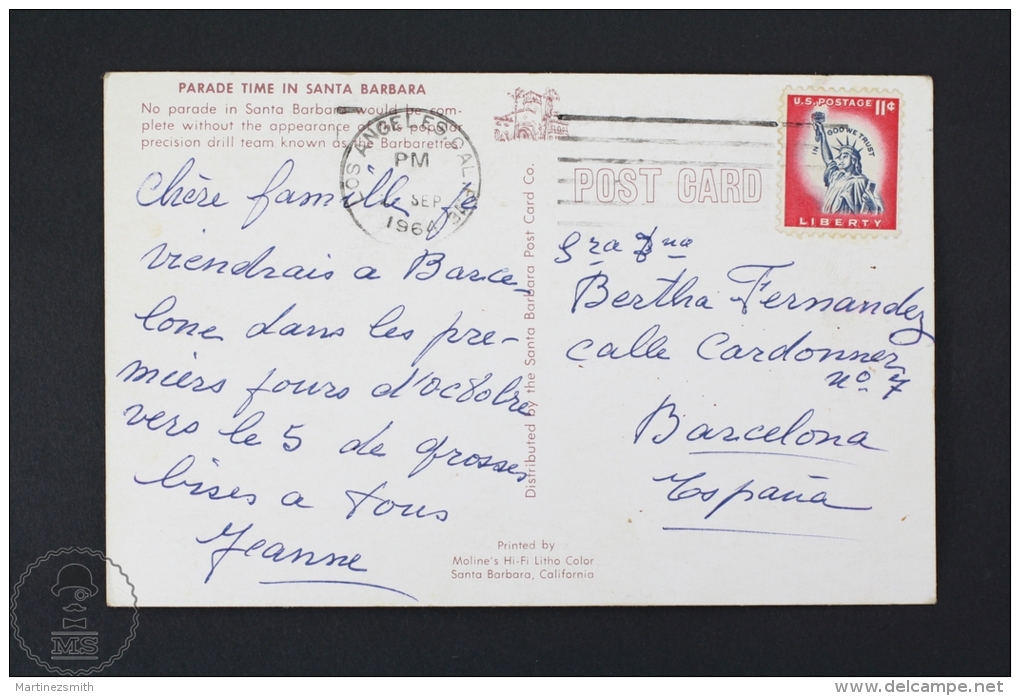 PARADE TIME IN SANTA BARBARA
No parade in Santa Barbara would be com-
plete without the appearance of this popular
precision drill team known as the Barbarettes
LOS ANGELES, CALIF.
PM
SEP
1964
U.S. POSTAGE 11¢
IN GOD WE TRUST
LIBERTY
POST CARD
Chère famille je
viendrais a Barce-
lone dans les pre-
miers jours d'octobre
vers le 5 de grosses
bises a tous
Jeanne
Distributed by the Santa Barbara Post Card Co.
Sra Dna
Bertha Fernandez
calle Cardonner
nº 7
Barcelona
España
Printed by
Moline's Hi-Fi Litho Color
Santa Barbara, California
MS
Martinezsmith
http://www.delcampe.net